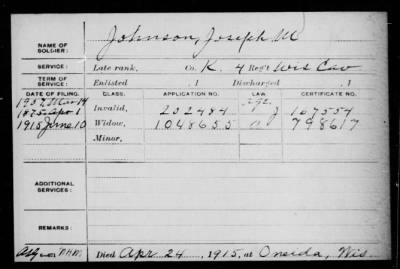 Johnson, Joseph M
NAME OF SOLDIER:
SERVICE: Late rank, Co. K. 4 Reg't Wis Cav
TERM OF SERVICE: Enlisted , 1 Discharged , 1
DATE OF FILING. CLASS. APPLICATION NO. LAW. CERTIFICATE NO.
1907 Mar 14 age.
1875 Apr 1 Invalid, 202484 J 167554
1915 June 10 Widow, 1048655 798617
Minor,
ADDITIONAL SERVICES:
REMARKS:
Died Apr 24, 1915, at Oneida, Wis